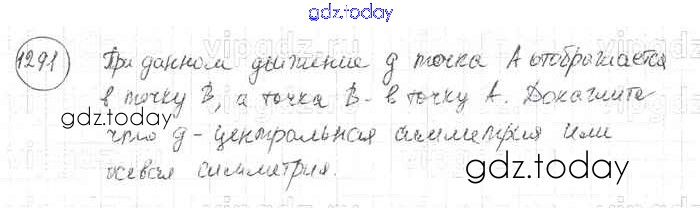 gdz.today
1291 При данном движение g точка A отображается
в точку B, а точка B - в точку A. Докажите
что g - центральная симметрия или
осевая симметрия.
gdz.today
gdz.today